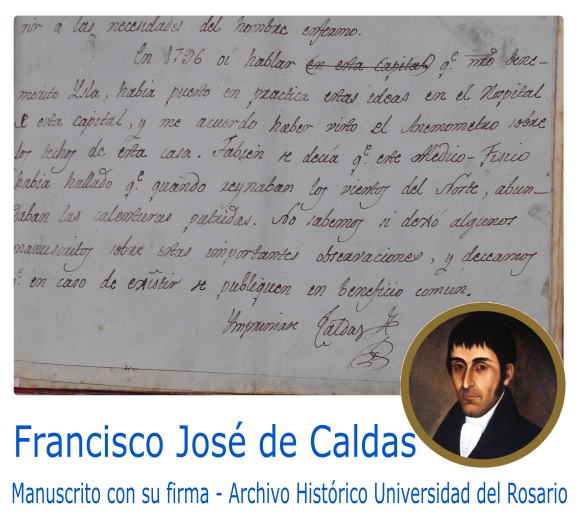 rir a las necesidades del hombre enfermo.
En 1796 oí hablar en esta Capital q.e nro bene-
merito Ysla, habia puesto en practica estas ideas en el Hospital
de esta capital, y me acuerdo haber visto el Anemometro sobre
los techos de esta casa. Tambien se decía q.e este Medico-Fisico
habia hallado q.e quando reynaban los vientos del Norte, abun-
daban las calenturas putridas. No sabemos si dexó algunos
manuscritos sobre estas importantes observaciones, y deceamos
q.e en caso de existir se publiquen en beneficio comun.
Ymprimase Caldas
Francisco José de Caldas
Manuscrito con su firma - Archivo Histórico Universidad del Rosario